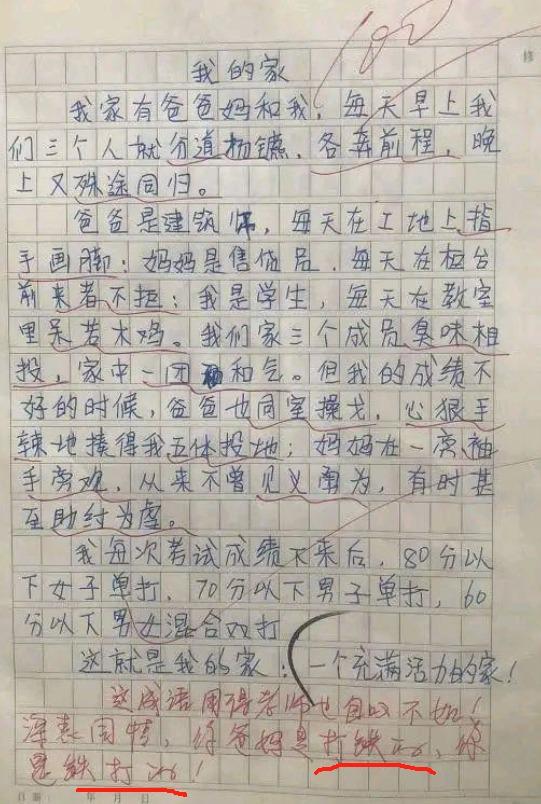 100
修
我的家
我家有爸爸妈和我，每天早上我
们三个人就分道扬镳，各奔前程，晚
上又殊途同归。
爸爸是建筑师，每天在工地上指
手画脚；妈妈是售货员，每天在柜台
前来者不拒；我是学生，每天在教室
里呆若木鸡。我们家三个成员臭味相
投，家中一团和气。但我的成绩不
好的时候，爸爸也同室操戈，心狠手
辣地揍得我五体投地；妈妈在一旁袖
手旁观，从来不曾见义勇为，有时甚
至助纣为虐。
我每次考试成绩下来后，80分以
下女子单打，70分以下男子单打，60
分以下男女混合双打
这就是我的家：一个充满活力的家！
这成语用得老师也自叹不如！
深表同情，你爸妈是打铁的，你
是铁打的！
日期： 年 月 日